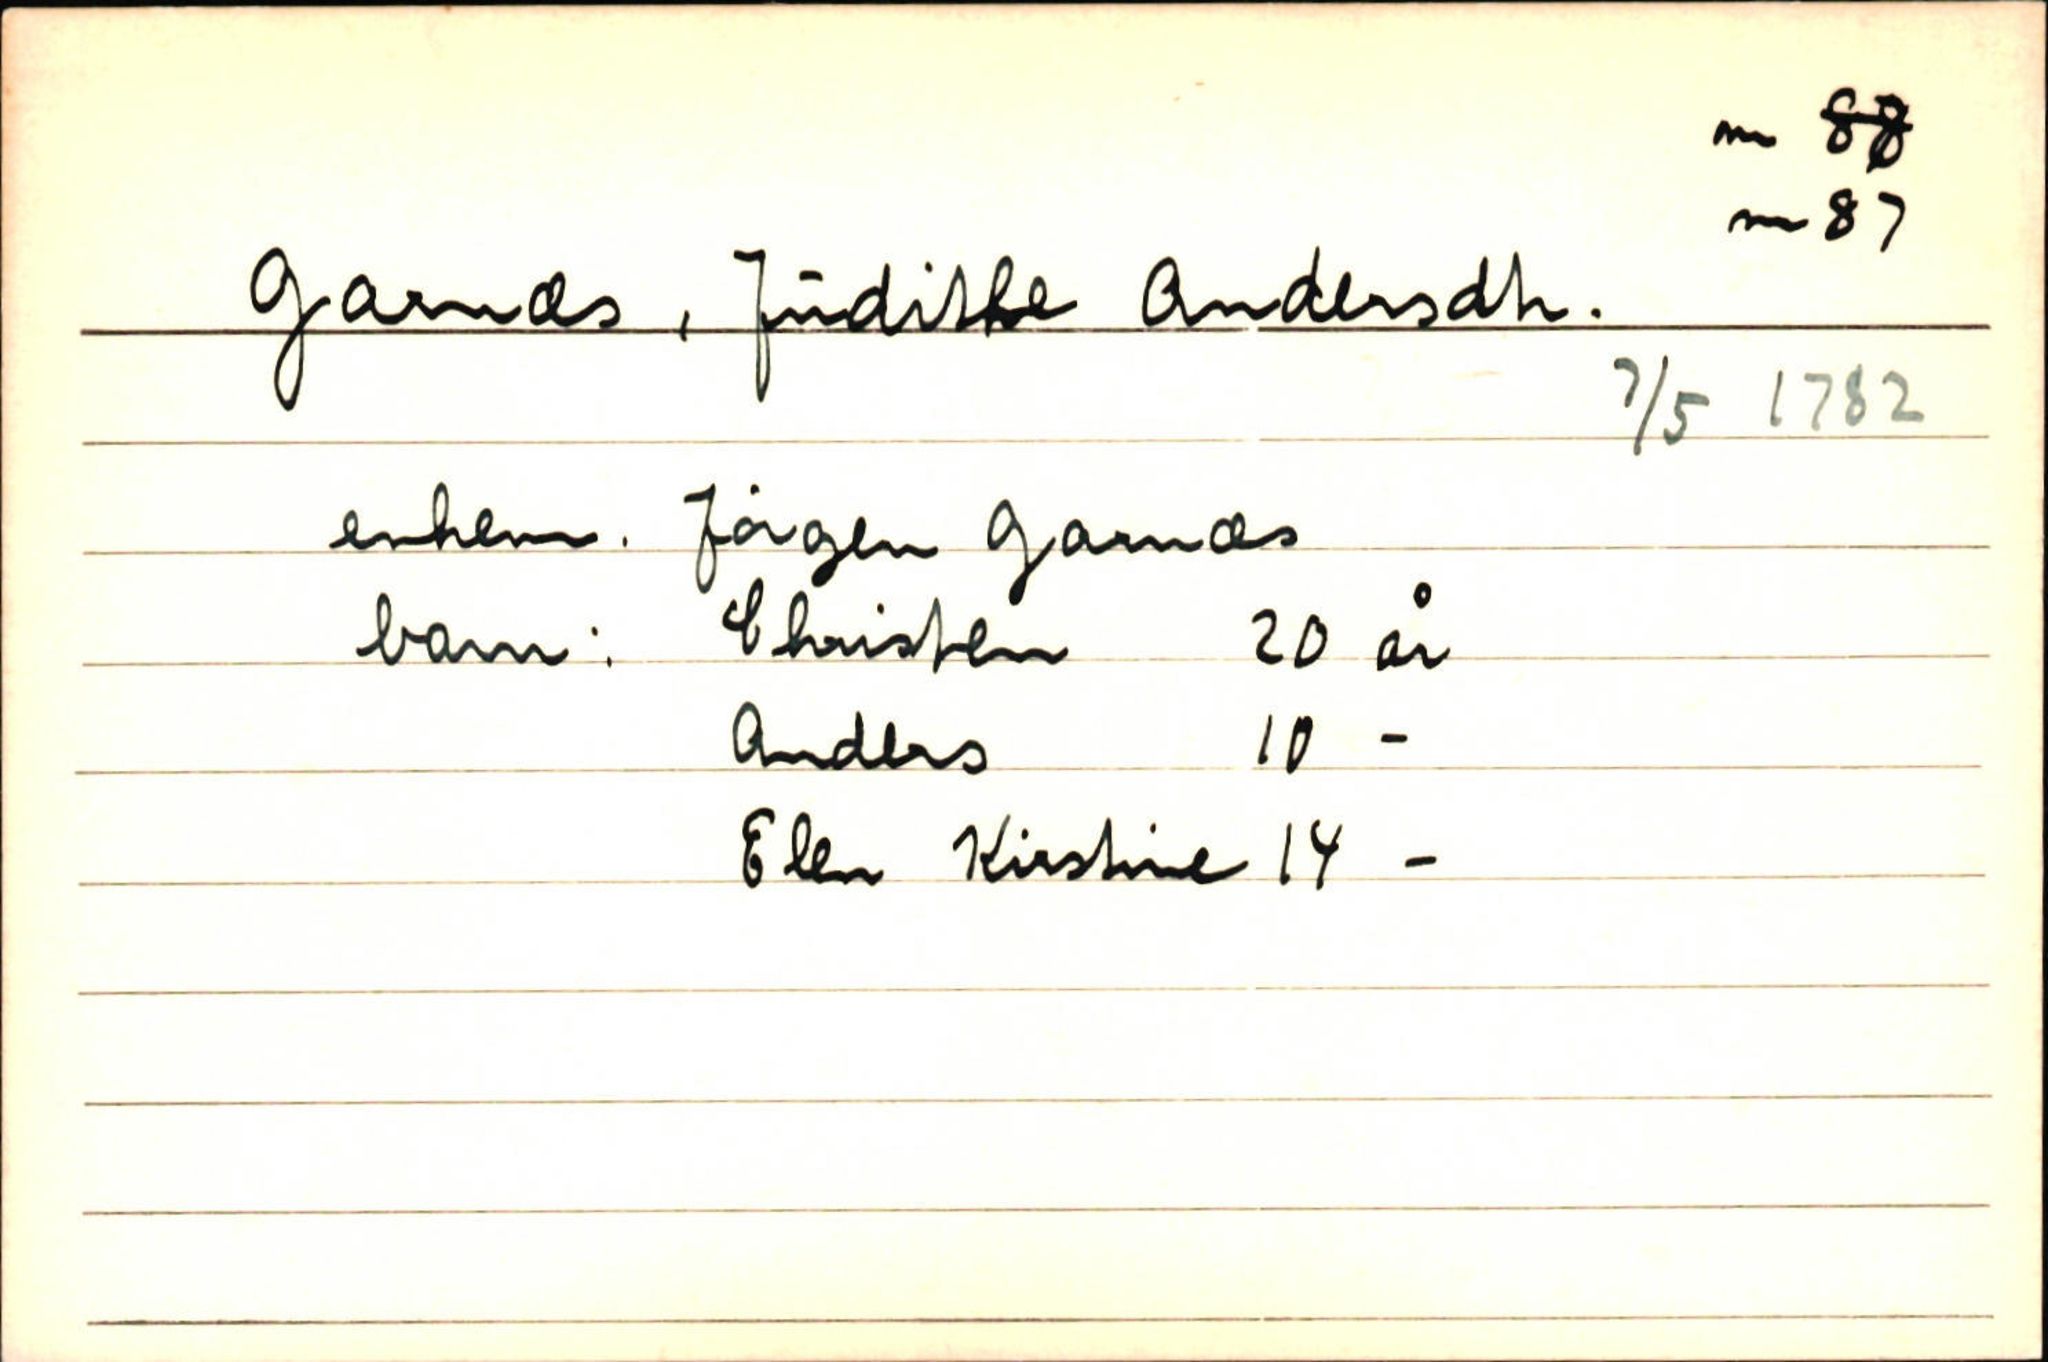 nr 88
nr 87
Garnæs, Jūdithe Andersdtr.
7/5 1782
enkem. Jörgen Garnæs
barn: Christen 20 år
Anders 10 -
Elen Kirstine 14 -